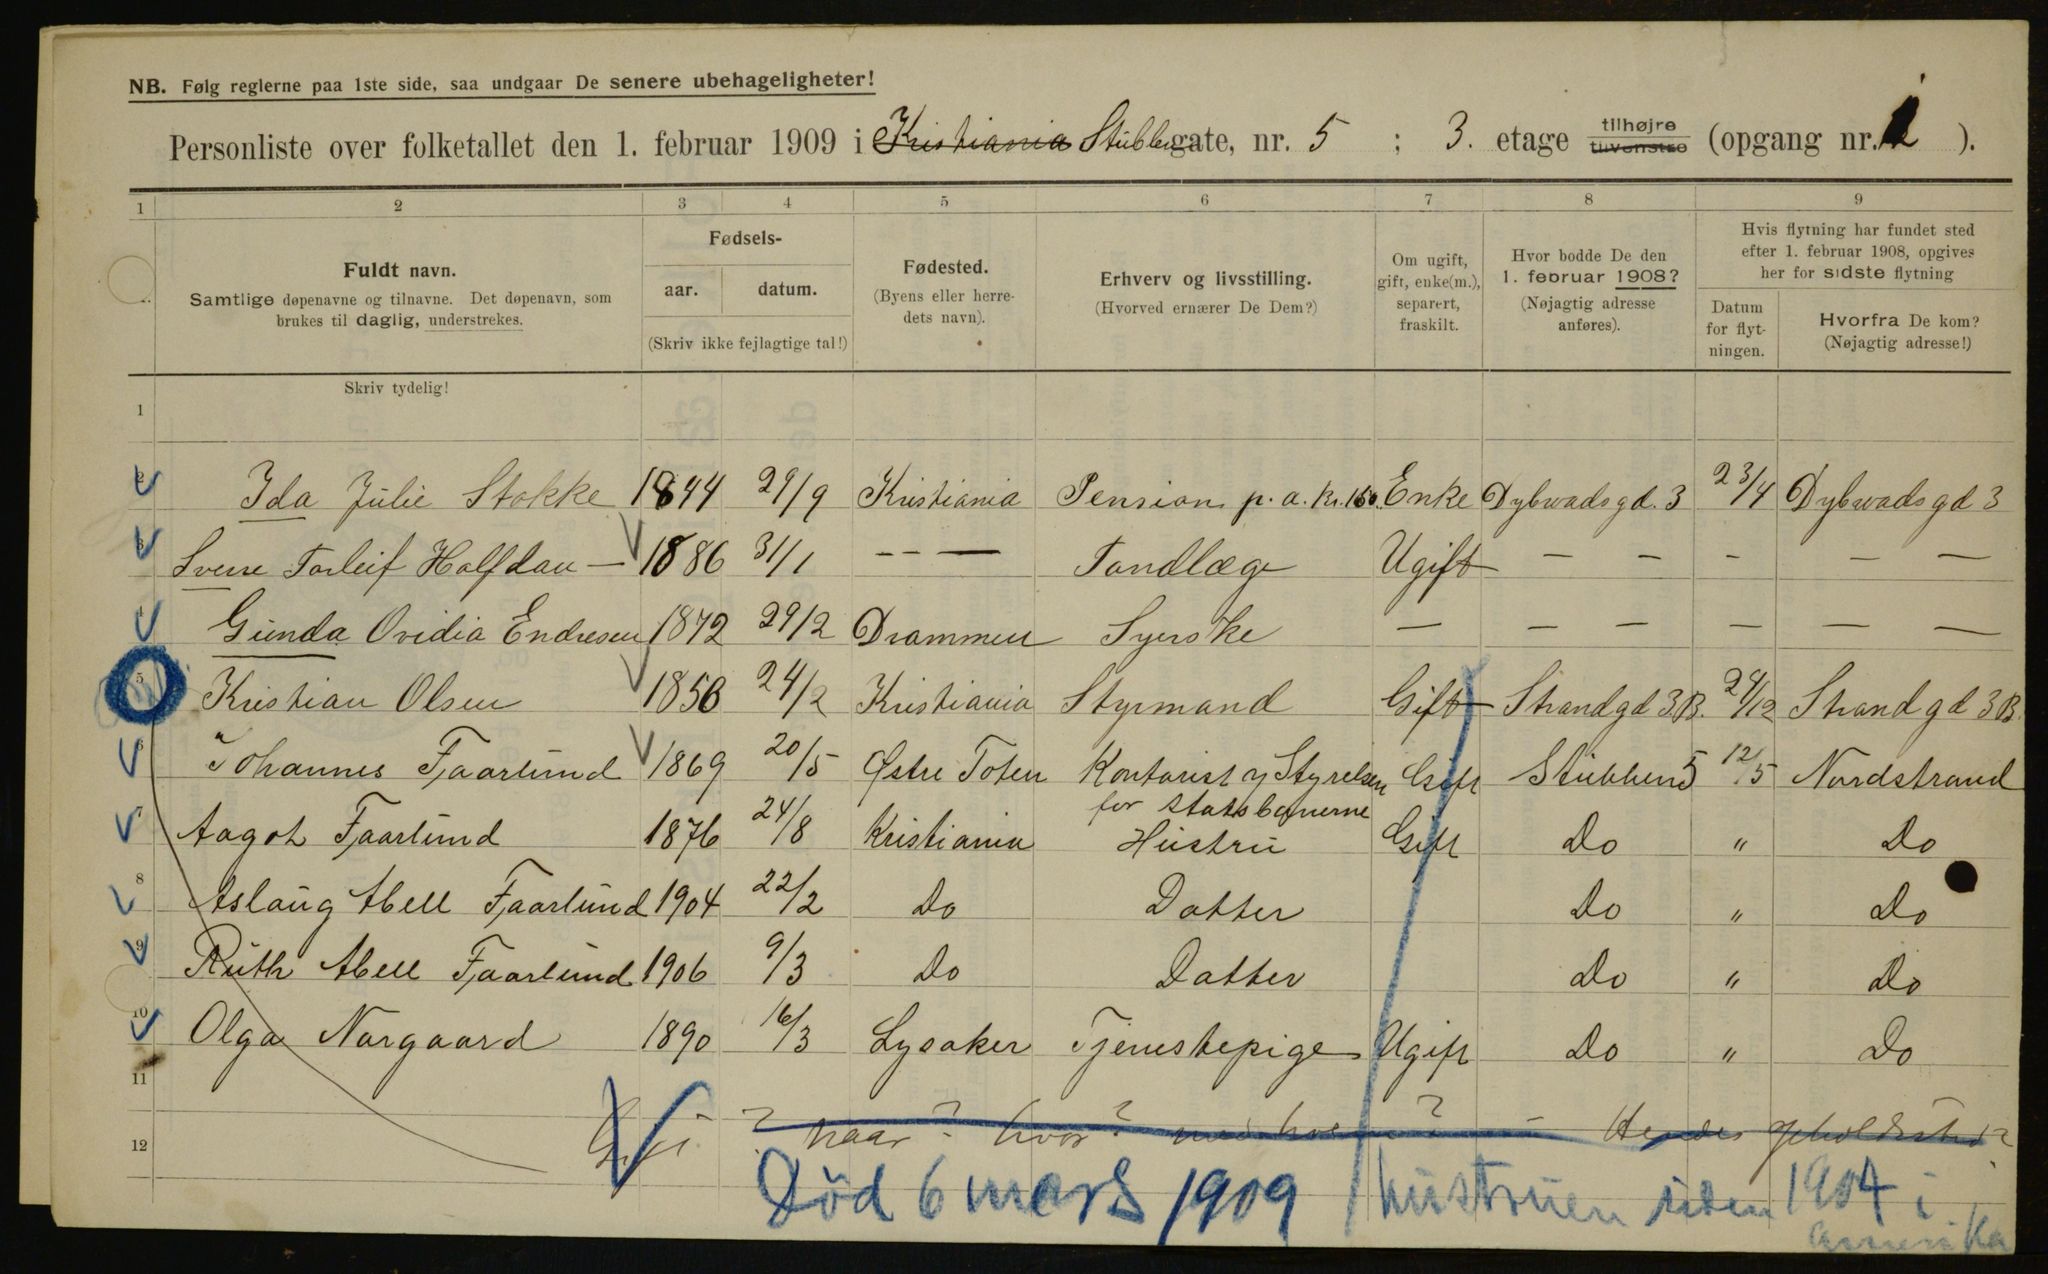 NB. Følg reglerne paa 1ste side, saa undgaar De senere ubehageligheter!
Personliste over folketallet den 1. februar 1909 i Kristiania Stubbengate, nr. 5 ; 3. etage tilhøjre tilvenstre (opgang nr. ).
1 2 3 4 5 6 7 8 9
Fuldt navn.
Samtlige døpenavne og tilnavne. Det døpenavn, som
brukes til daglig, understrekes.
Fødsels-
aar. datum.
(Skriv ikke fejlagtige tal!)
Fødested.
(Byens eller herre-
dets navn).
Erhverv og livsstilling.
(Hvorved ernærer De Dem?)
Om ugift,
gift, enke(m.),
separert,
fraskilt.
Hvor bodde De den
1. februar 1908?
(Nøjagtig adresse
anføres).
Hvis flytning har fundet sted
efter 1. februar 1908, opgives
her for sidste flytning
Datum
for flyt-
ningen.
Hvorfra De kom?
(Nøjagtig adresse!)
Skriv tydelig!
1
2 Ida Julie Stokke 1844 29/9 Kristiania Pension p. a. kr. Enke Dybwadsgd. 3 23/4 Dybwadsgd 3
3 Sverre Torleif Halfdan — 1886 31/1 - - — Tandlæge Ugift — — - — —
4 Gunda Ovidia Endresen 1872 29/2 Drammen Syerske — — — - — —
5 Kristian Olsen 1850 24/2 Kristiania Styrmand Gift Strandgd 3B. 29/12 Strandgd 3B.
6 Johannes Faarlund 1869 20/5 Østre Toten Kontorist v Styrelsen Gift Stubben 5 12/5 Nordstrand
for Statsbanerne
7 Aagot Faarlund 1876 24/8 Kristiania Hustru Gift Do " Do
8 Aslaug Abell Faarlund 1904 22/2 Do Datter Do " Do
9 Ruth Abell Faarlund 1906 9/3 Do Datter Do " Do
10 Olga Norgaard 1890 16/3 Lysaker Tjenestepige Ugift Do " Do
11
12 Gift ? naar? hvor? med hvem? — Hendes opholdssted?
Død 6 mars 1909 / hustruen siden 1904 i
Amerika